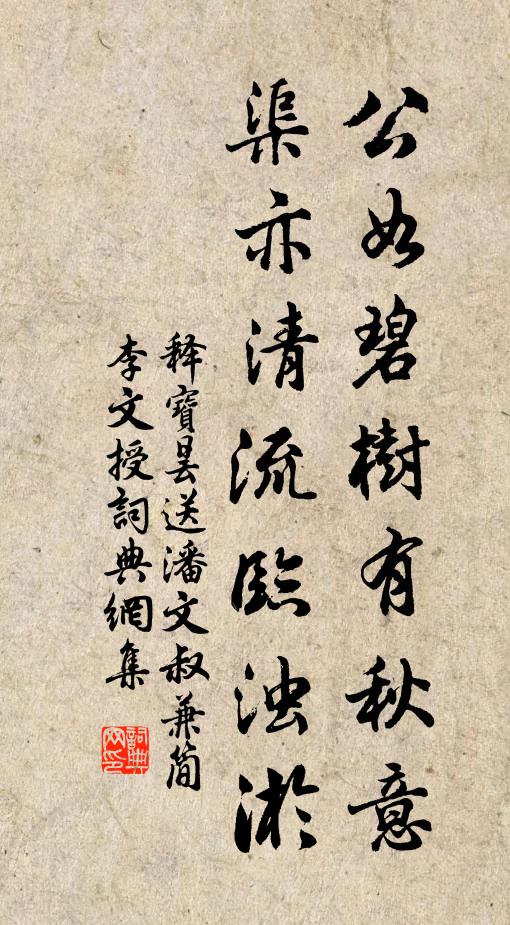 公如碧樹有秋意
渠亦清流臨浊淤
释寶曇送潘文叔兼简
李文授詞典網集
詞典
网印